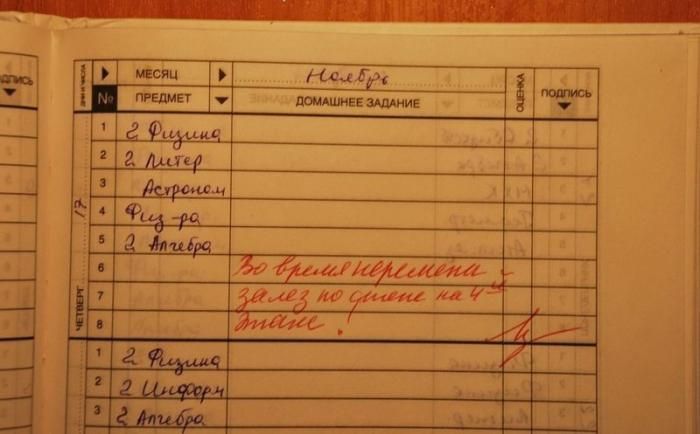 ПОДПИСЬ
ДНИ И ЧИСЛА
МЕСЯЦ Ноябрь
№ ПРЕДМЕТ ДОМАШНЕЕ ЗАДАНИЕ ОЦЕНКА ПОДПИСЬ
ЧЕТВЕРГ 17
1 2 Физика
2 2 Литер
3 Астроном
4 Физ-ра
5 2 Алгебра
6 Во время перемены
7 залез по стене на 4ый
8 этаж!
1 2 Физика
2 2 Информ
3 2 Алгебра